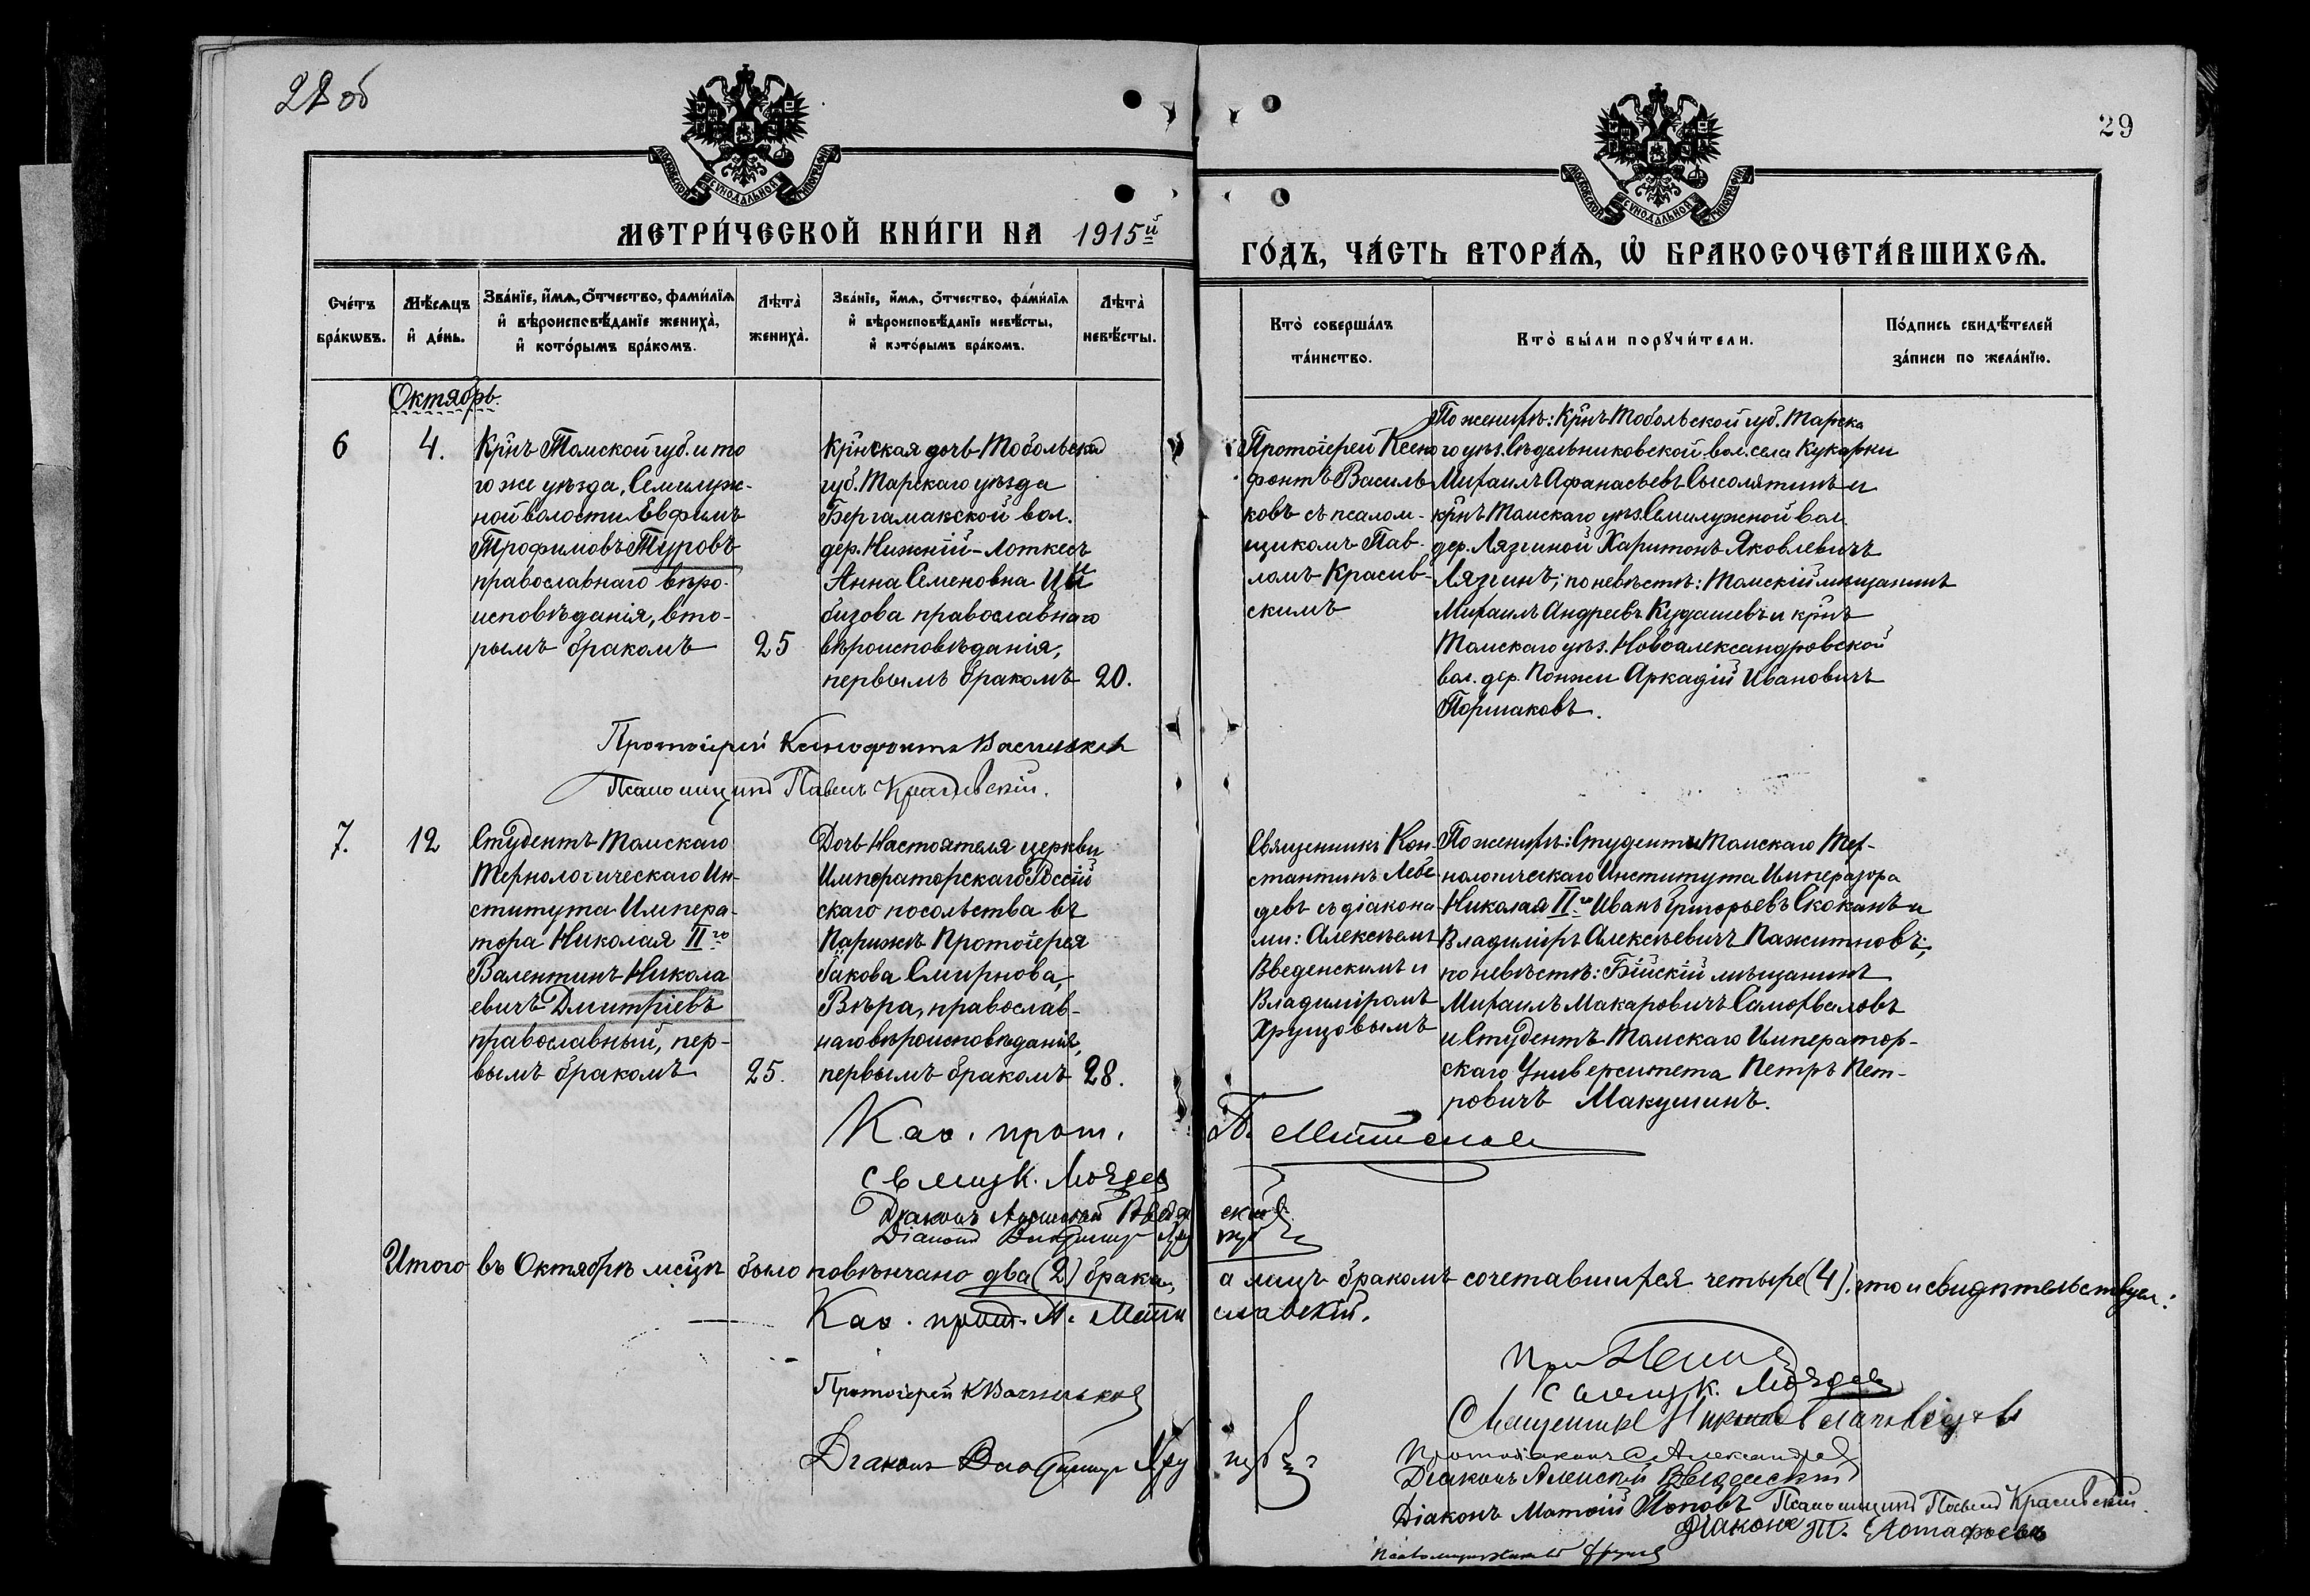 28 об
29
МЕТРИЧЕСКОЙ КНИГИ НА 1915й
ГОДЪ, ЧАСТЬ ВТОРАЯ, Ѿ БРАКОСОЧЕТАВШИХСЯ.
Счетъ браковъ.
Мѣсяцъ и день.
Званіе, имя, отчество, фамилія
и вѣроисповѣданіе жениха,
и которымъ бракомъ.
Лѣта жениха.
Званіе, имя, отчество, фамилія
и вѣроисповѣданіе невѣсты,
и которымъ бракомъ.
Лѣта невѣсты.
Кто совершалъ
таинство.
Кто были поручители.
Подпись свидѣтелей
записи по желанію.
Октябрь.
6
4.
Крнъ Томской губ. и то
го же уѣзда, Семилуж-
ной волости Евфимъ
Трофимовъ Туровъ
православнаго вѣро-
исповѣданія, вто-
рымъ бракомъ
25
Крнская дочь Тобольской
губ. Тарскаго уѣзда
Бергамакской вол.
дер. Нижній-
Анна Семеновна Цы
бизова православнаго
вѣроисповѣданія,
первымъ бракомъ
20.
Протоіерей Ксено
фонтъ Василь
ковъ съ псалом-
щикомъ Пав-
ломъ Красив-
скимъ
По женихѣ: Крнъ Тобольской губ. Тарска
го уѣз. Сѣдельниковской вол. села Кукарки
Михаилъ Афанасьевъ Сысолятинъ и
крнъ Томскаго уѣз. Семилужной вол.
дер. Лязгиной Харитонъ Яковлевичъ
Лязгинъ; по невѣстѣ: Томскій мѣщанинъ
Михаилъ Андреевъ Кудашевъ и крнъ
Томскаго уѣз. Новоалександровской
вол. дер. Понжи Аркадій Ивановичъ
Поршаковъ.
Протоіерей Ксенофонтъ Васильковъ
Псаломщикъ Павелъ Красивскій.
7.
12
Студентъ Томскаго
Технологическаго Ин-
ститута Импера-
тора Николая II го
Валентинъ Никола
евичъ Дмитріевъ
православный, пер-
вымъ бракомъ
25.
Дочь Настоятеля церкви
Императорскаго Россій
скаго посольства въ
Парижѣ Протоіерея
Іакова Смирнова,
Вѣра, православ-
наго вѣроисповѣданія,
первымъ бракомъ
28.
Священникъ Кон-
стантинъ Лебе-
девъ съ діакона
ми: Алексѣемъ
Введенскимъ и
Владиміромъ
Хрущовымъ
По женихѣ: Студенты Томскаго Тех-
нологическаго Института Императора
Николая II го Иванъ Григорьевъ Скоканъ и
Владиміръ Алексѣевичъ Пажитновъ;
по невѣстѣ: Бійскій мѣщанинъ
Михаилъ Макаровичъ Самохваловъ
и Студентъ Томскаго Император-
скаго Университета Петръ Пет-
ровичъ Макушинъ.
Каѳ. прот.
Діаконъ Алексѣй Введенскій
Діаконъ Владиміръ Хрущовъ
Итого въ Октябрѣ мсцѣ было повѣнчано два (2) брака, а лицъ бракомъ сочетавшихся четыре (4). что и свидѣтельствуемъ:
Каѳ. прот. П. Мстиславскій.
Протоіерей К Васильковъ
Діаконъ Владиміръ Хрущовъ
Священникъ
Протодіаконъ
Діаконъ Алексѣй Введенскій
Діаконъ Матѳій Поповъ Псаломщикъ Павелъ Красивскій
Діаконъ